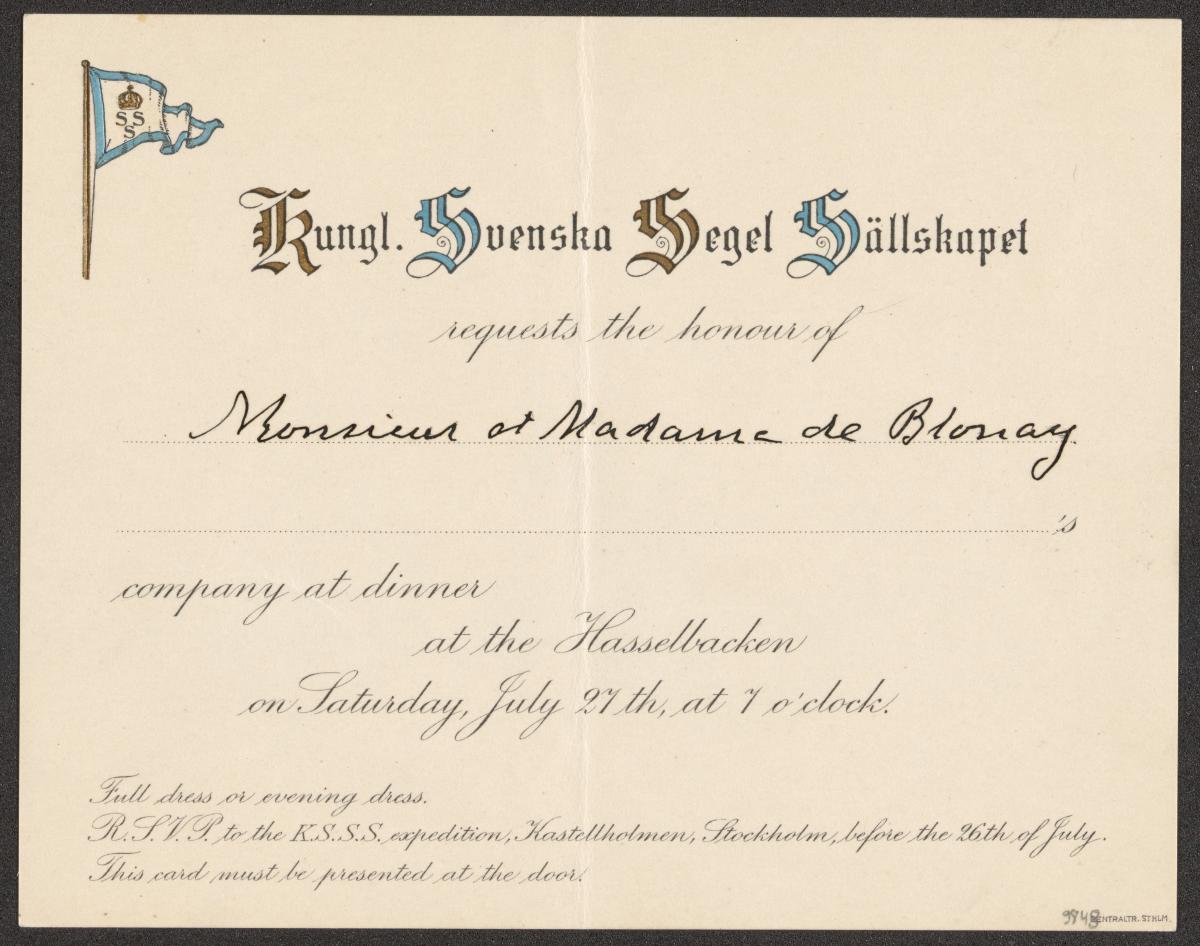 SS
S
Kungl. Svenska Segel Sällskapet
requests the honour of
Monsieur et Madame de Blonay
's
company at dinner
at the Hasselbacken
on Saturday, July 27th, at 7 o'clock.
Full dress or evening dress.
R.S.V.P. to the K.S.S.S. expedition, Kastellholmen, Stockholm, before the 26th of July.
This card must be presented at the door.
CENTRALTR. STHLM.